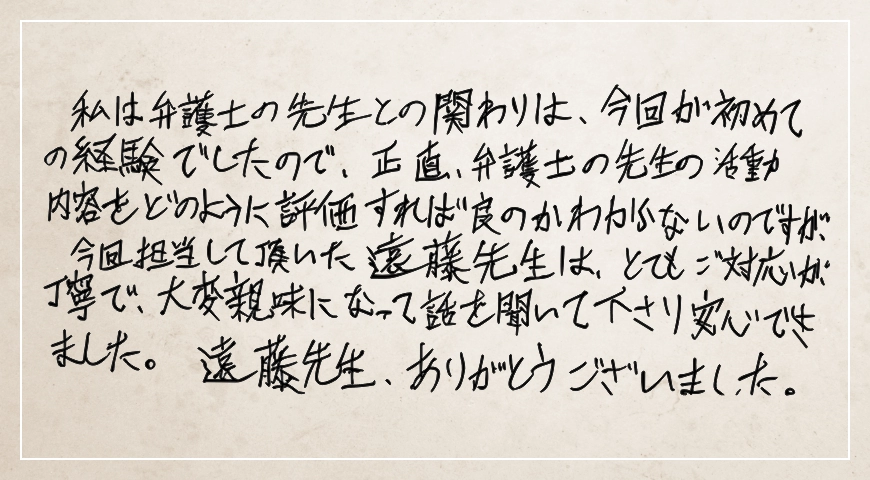 私は弁護士の先生との関わりは、今回が初めて
の経験でしたので、正直、弁護士の先生の活動
内容をどのように評価すれば良のかわからないのですが、
今回担当して頂いた遠藤先生は、とてもご対応が、
丁寧で、大変親味になって話を聞いて下さり安心でき
ました。 遠藤先生、ありがとうございました。